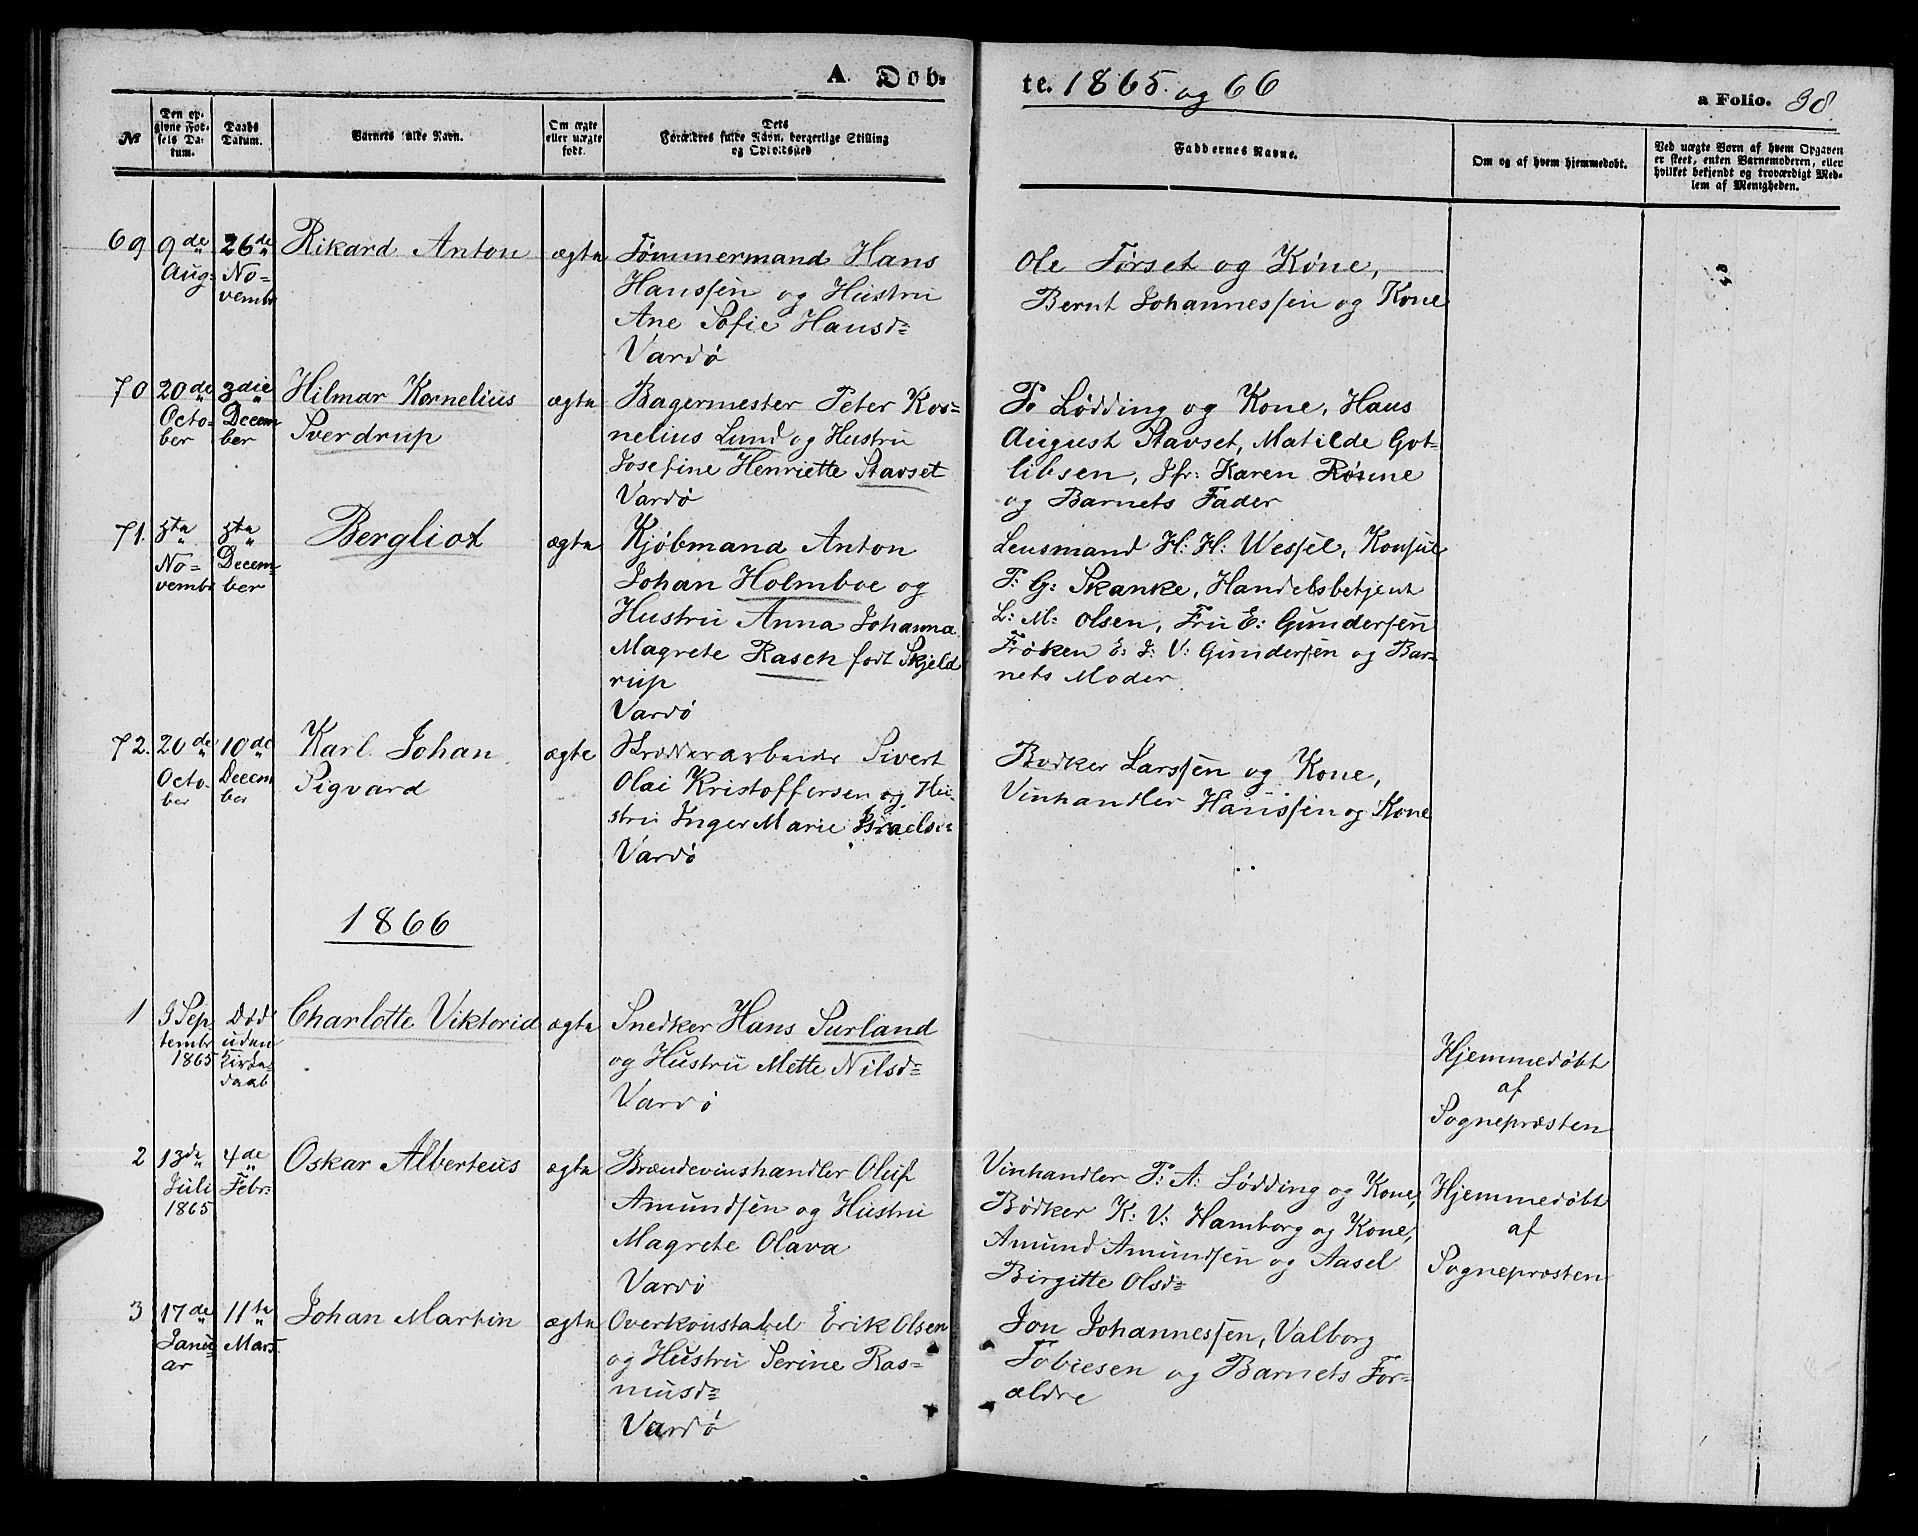 A. Døb-
te. 1865. og 66
a Folio. 38.
№
Den op-
givne Fød-
sels Da-
tum.
Daabs
Datum.
Barnets fulde Navn.
Om ægte
eller uægte
født.
Dets
Forældres fulde Navn, borgerlige Stilling
og Opholdssted
Faddernes Navne.
Om og af hvem hjemmedøbt.
Ved uægte Børn af hvem Opgaven
er skeet, enten Barnemoderen, eller
hvilket bekjendt og troværdigt Med-
lem af Menigheden.
69
9de
Aug:
26de
No-
vembr
Rikard Anton
ægte
Tømmermand Hans
Hanssen og Hustru
Ane Sofie Hansd=
Vardø
Ole Førset og Kone,
Bernt Johannessen og Kone
70
20de
Octo-
ber
3die
Decem
ber
Hilmar Kornelius
Sverdrup
ægte
Bagermester Peter Kor=
nelius Lund og Hustru
Josefine Henriette Stavset
Vardø
P. Lødding og Kone, Hans
August Stavset, Matilde Got-
libsen, Jfr: Karen Rønne
og Barnets Fader
71.
8ta
No-
vembr
8ta
Decem-
ber
Bergliot
ægte
Kjøbmand Anton
Johan Holmboe og
Hustru Anna Johanna
Magrete Rasch født Skjeld
rup
Vardø
Lensmand H: H: Wessel, Konsul
T: G: Skanke, Handelsbetjent
L: M: Olsen, Fru E: Gundersen
Frøken E: J: V: Gundersen og Bar=
nets Moder
72.
20de
Octo-
ber
10de
Decem
ber
Karl Johan
Sigvard
ægte
Skrædderarbeider Sivert
Olai Kristoffersen og Hu-
stru Inger Marie Israelsd=
Vardø
Bødker Larssen og Kone,
Vinhandler Hanssen og Kone
1866
1
9 Sep-
tembr
1865
Død
uden
Kirke-
daab
Charlotte Viktoria
ægte
Snedker Hans Surland
og Hustru Mette Nilsd=
Vardø
Hjemmedøbt
af
Sognepræsten
2
13de
Juli
1865
4de
Febr:
Oskar Alberteus
ægte
Brændevinshandler Oluf
Amundsen og Hustru
Magrete Olava
Vardø
Vinhandler P: A: Lødding og Kone,
Bødker K: V: Hamborg og Kone,
Amund Amundsen og Aasel
Birgitte Olsd=
Hjemmedøbt
af
Sognepræsten
3
17de
Janu-
ar
11te
Mars
Johan Martin
ægte
Overkonstabel Erik Olsen
og Hustru Serine Ras=
musd=
Vardø
Jon Johannessen, Valborg
Tobiesen og Barnets For-
ældre